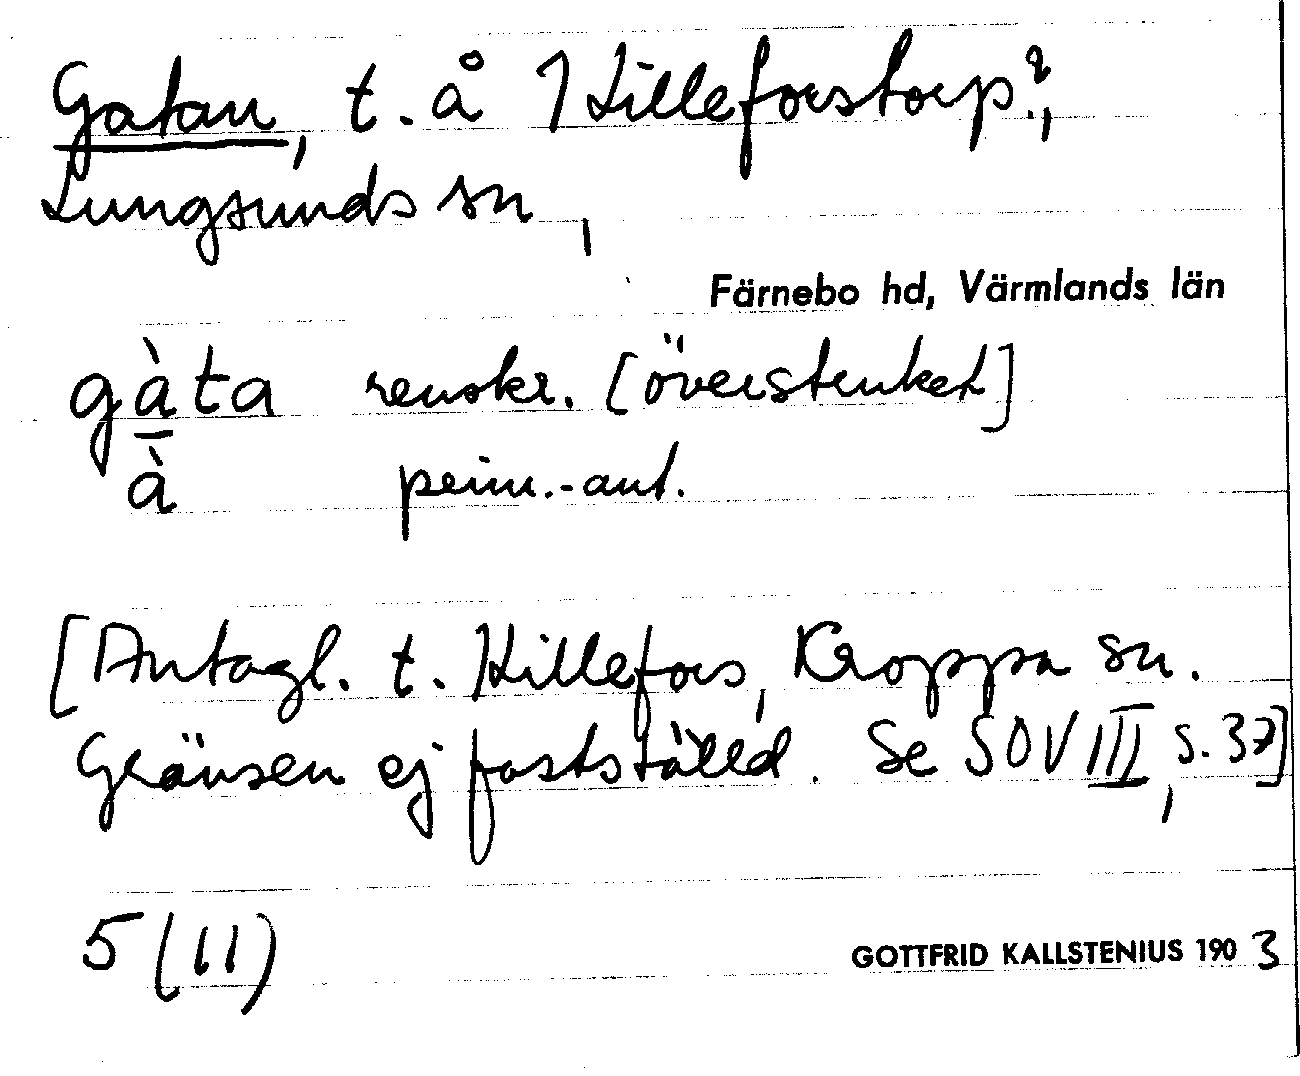 Gatan, t. å Hilleforstorp?,
Lungsunds sn,
Färnebo hd, Värmlands län
gàta renskr. [överstruket]
à prim.-ant.
[Antagl. t. Hillefors, Kroppa sn.
Gränsen ej fastställd. Se SOV III, s. 37]
5 (11)
GOTTFRID KALLSTENIUS 1903